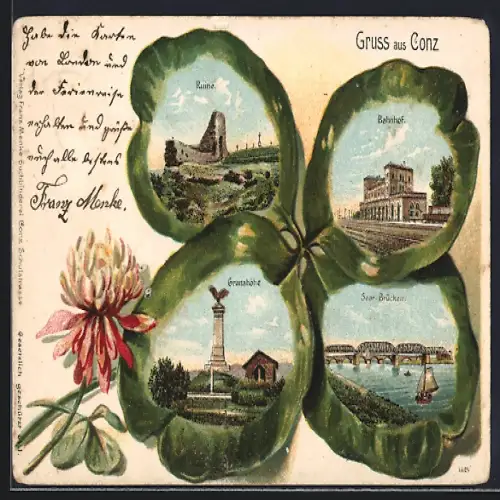 Gruss aus Conz
Habe die Karten
von London und
der Ferienreise
erhalten und grüße
euch alle bestens
Franz Menke.
Ruine.
Bahnhof.
Granahöhe
Saar-Brücken.
Verlag Franz Menke Buchbinderei Conz
Gesetzlich Geschützt